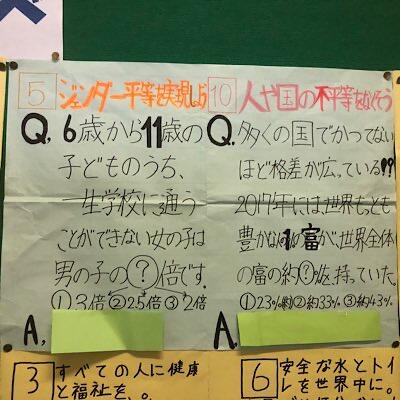 5 ジェンダー平等を実現しよう
Q. 6歳から11歳の
子どものうち、
一生学校に通う
ことができない女の子は
男の子の?倍です.
①3倍 ②2.5倍 ③2倍
A.
10 人や国の不平等をなくそう
Q. 多くの国でかつてない
ほど格差が広っている!?
2017年には世界もっとも
豊かな 1 富が、世界全体
の富の約?%を持っていた。
①23%約 ②約33% ③約43%
A.
3 すべての人に健康
と福祉を。
6 安全な水とトイ
レを世界中に。